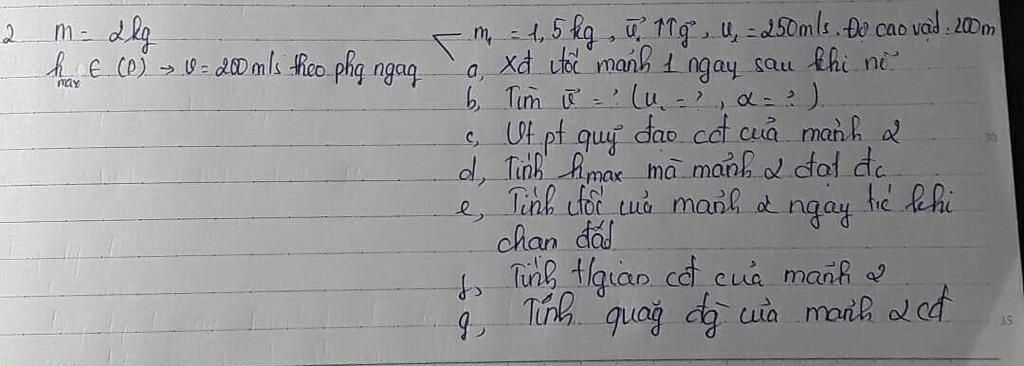 2 m = 2kg
h max ∈ (P) → v = 200 m/s theo phg ngag
m₁ = 1,5 kg, v₁ ↑↑ g, v₁ = 250m/s. Độ cao vật: 200m
a, Xđ vtốc mảnh 1 ngay sau khi nổ
b, Tìm v = ? (v₂ = ?, α = ?)
c, Vt pt quỹ đạo cđ của mảnh 2
d, Tính hmax mà mảnh 2 đạt đc
e, Tính vtốc của mảnh 2 ngay tc khi
chạm đất
f, Tính t/gian cđ của mảnh 2
g, Tính quãg đg của mảnh 2 cđ
30
35